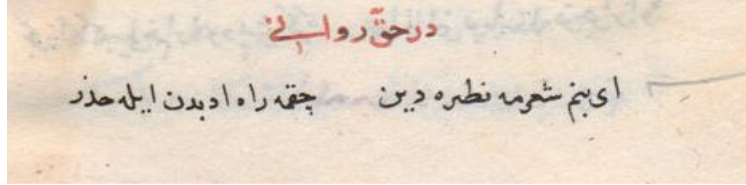 در حقّ روانی
ای بنم شعرمه نظیره دین چقمه راه ادبدن ایله حذر